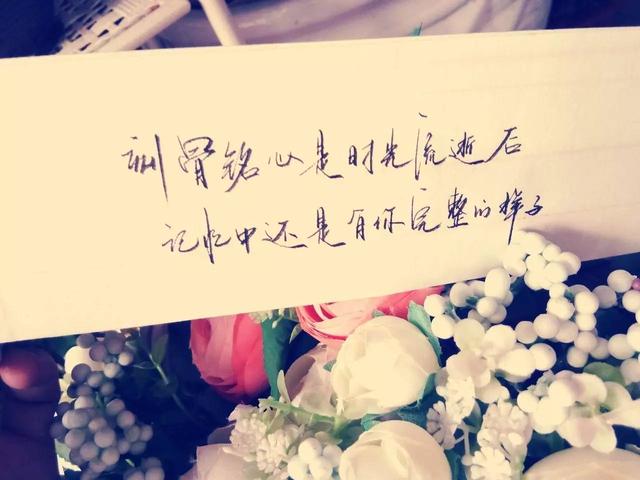 刻骨铭心是时光流逝后
记忆中还是有你完整的样子